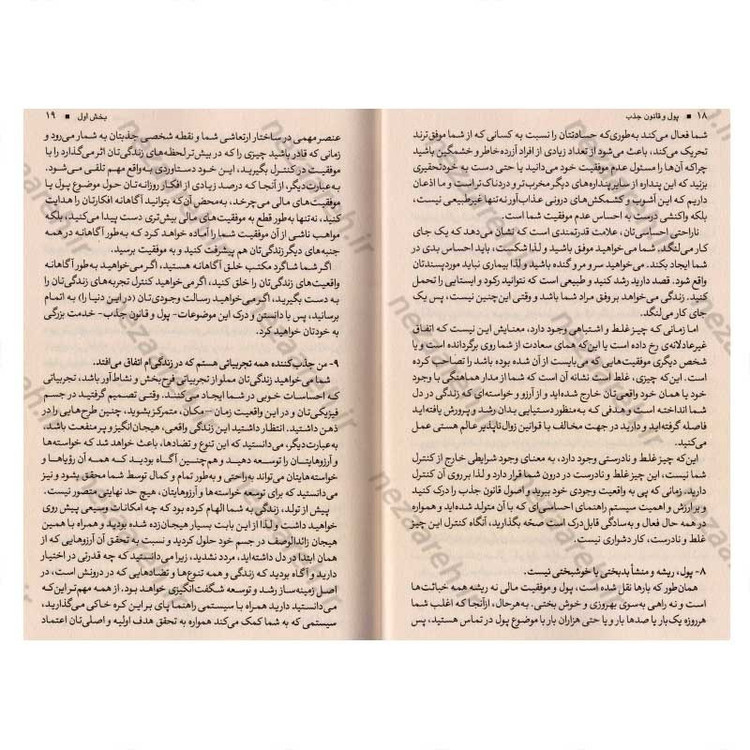 ۱۸ ■ پول و قانون جذب
شما فعال می‌کند به‌طوری‌که حسادتتان را نسبت به کسانی که از شما موفق‌ترند
تحریک می‌کند، باعث می‌شود از تعداد زیادی از افراد آزرده‌خاطر و خشمگین باشید
چراکه آن‌ها را مسئول عدم موفقیت خود می‌دانید یا حتی دست به خودتحقیری
بزنید که این پنداره از سایر پنداره‌های دیگر مخرب‌تر و دردناک‌تر است و ما اذعان
داریم که این آشوب و کشمکش‌های درونی عذاب‌آور نه‌تنها غیرطبیعی نیست،
بلکه واکنشی درست به احساس عدم موفقیت شما است.
ناراحتی احساسی‌تان، علامت قدرتمندی است که نشان می‌دهد که یک جای
کار می‌لنگد. شما می‌خواهید موفق باشید و لذا شکست، باید احساس بدی در
شما ایجاد بکند. می‌خواهید سر و مر و گنده باشید و لذا بیماری نباید موردپسندتان
واقع شود. قصد دارید رشد کنید و طبیعی است که نتوانید رکود و ایستایی را تحمل
کنید. زندگی می‌خواهد بر وفق مراد شما باشد و وقتی این‌چنین نیست، پس یک
جای کار می‌لنگد.
اما زمانی که چیز غلط و اشتباهی وجود دارد، معنایش این نیست که اتفاق
غیرعادلانه‌ی رخ داده است یا این‌که همای سعادت از شما روی برگردانده است و یا
شخص دیگری موفقیت‌هایی که می‌بایست از آن شده بوده باشد را تصاحب کرده
است. این‌که چیزی، غلط است نشانه آن است که شما از مدار هماهنگی با وجود
خود یا همان خود واقعی‌تان خارج شده‌اید و از آرزو و خواسته‌ای که زندگی در دل
شما انداخته است و هدفی که به‌منظور دستیابی بدان رشد و پرورش یافته‌اید
فاصله گرفته‌اید و دارید در جهت مخالف با قوانین زوال‌ناپذیر عالم هستی عمل
می‌کنید.
این‌که چیز غلط و نادرستی وجود دارد، به معنای وجود شرایطی خارج از کنترل
شما نیست، این چیز غلط و نادرست در درون شما قرار دارد و لذا بر روی آن کنترل
دارید. زمانی که پی به واقعیت وجودی خود ببرید و اصول قانون جذب را درک کنید
و بر ارزش و اهمیت سیستم راهنمای احساسی‌ای که با آن متولد شده‌اید و همواره
در همه حال فعال و به‌سادگی قابل‌درک است صحه بگذارید، آنگاه کنترل این چیز
غلط و نادرست، کار دشواری نیست.
۸- پول، ریشه و منشأ بدبختی یا خوشبختی نیست.
همان‌طور که بارها نقل شده است، پول و موفقیت مالی نه ریشه همه خباثت‌ها
است و نه راهی به‌سوی بهروزی و خوش بختی. به‌هرحال، ازآنجا که اغلب شما
هرروزه یک‌بار یا صدها بار و یا حتی هزاران بار با موضوع پول در تماس هستید، پس
بخش اول ■ ۱۹
عنصر مهمی در ساختار ارتعاشی شما و نقطه شخصی جذبتان به شمار می‌رود و
زمانی که قادر باشید چیزی را که در بیش‌تر لحظه‌های زندگی‌تان اثر می‌گذارد را با
موفقیت در کنترل بگیرید، این خود دستاوردی به‌واقع مهم تلقی می‌شود.
به‌عبارت‌دیگر، از آنجا که درصد زیادی از افکار روزانه‌تان حول موضوع پول یا
موفقیت‌های مالی می‌چرخد، به‌محض آن‌که بتوانید آگاهانه افکارتان را هدایت
کنید، نه‌تنها به‌طور قطع به موفقیت‌های مالی بیش‌تری دست پیدا می‌کنید، بلکه
مواهب ناشی از آن موفقیت شما را آماده خواهد کرد که به‌طور آگاهانه در همه
جنبه‌های دیگر زندگی‌تان هم پیشرفت کنید و به موفقیت برسید.
اگر شما شاگرد مکتب خلق آگاهانه هستید، اگر می‌خواهید به‌طور آگاهانه
واقعیت‌های زندگی‌تان را خلق کنید، اگر می‌خواهید کنترل تجربه‌های زندگی‌تان را
به دست بگیرید، اگر می‌خواهید رسالت وجودی‌تان (در این دنیا را) به اتمام
برسانید، پس با دانستن و درک این موضوعات- پول و قانون جذب- خدمت بزرگی
به خودتان خواهید کرد.
۹- من جذب‌کننده همه تجربیاتی هستم که در زندگی‌ام اتفاق می‌افتد.
شما می‌خواهید زندگی‌تان مملو از تجربیاتی فرح‌بخش و نشاط‌آور باشد، تجربیاتی
که احساسات خوبی در شما ایجاد می‌کنند. وقتی تصمیم گرفتید در جسم
فیزیکی‌تان و در این واقعیت زمان – مکان، متمرکز بشوید، چنین طرح‌هایی را در
ذهن داشتید. انتظار داشتید این زندگی واقعی، هیجان‌انگیز و پر منفعت باشد،
به‌عبارت‌دیگر، می‌دانستید که این تنوع و تضادها، باعث خواهد شد که خواسته‌ها
و آرزوهایتان را توسعه دهید و هم‌چنین آگاه بودید که همه آن رؤیاها و
خواسته‌هایتان می‌تواند به‌راحتی و به‌طور تمام و کمال توسط شما محقق بشود و نیز
می‌دانستید که برای توسعه خواسته‌ها و آرزوهایتان، هیچ حد نهایتی متصور نیست.
پیش از تولد، زندگی به شما الهام کرده بود که چه امکانات وسیعی پیش روی
خواهید داشت و لذا از این بابت بسیار هیجان‌زده شده بودید و همراه با همین
هیجان زائدالوصف در جسم خود حلول کردید و نسبت به تحقق آن آرزوهایی که از
همان ابتدا در دل داشته‌اید، مردد نشدید، زیرا می‌دانستید که چه قدرتی در اختیار
دارید و آگاه بودید که زندگی و همه تنوع‌ها و تضادهایی که در درونش است، در
اصل زمینه‌ساز رشد و توسعه شگفت‌انگیزی خواهد بود. از همه مهم‌تر این‌که
می‌دانستید دارید همراه با سیستمی راهنما پای بر این کره خاکی می‌گذارید،
سیستمی که به شما کمک می‌کند همواره به تحقق هدف اولیه و اصلی‌تان اعتماد
nezaareh.ir